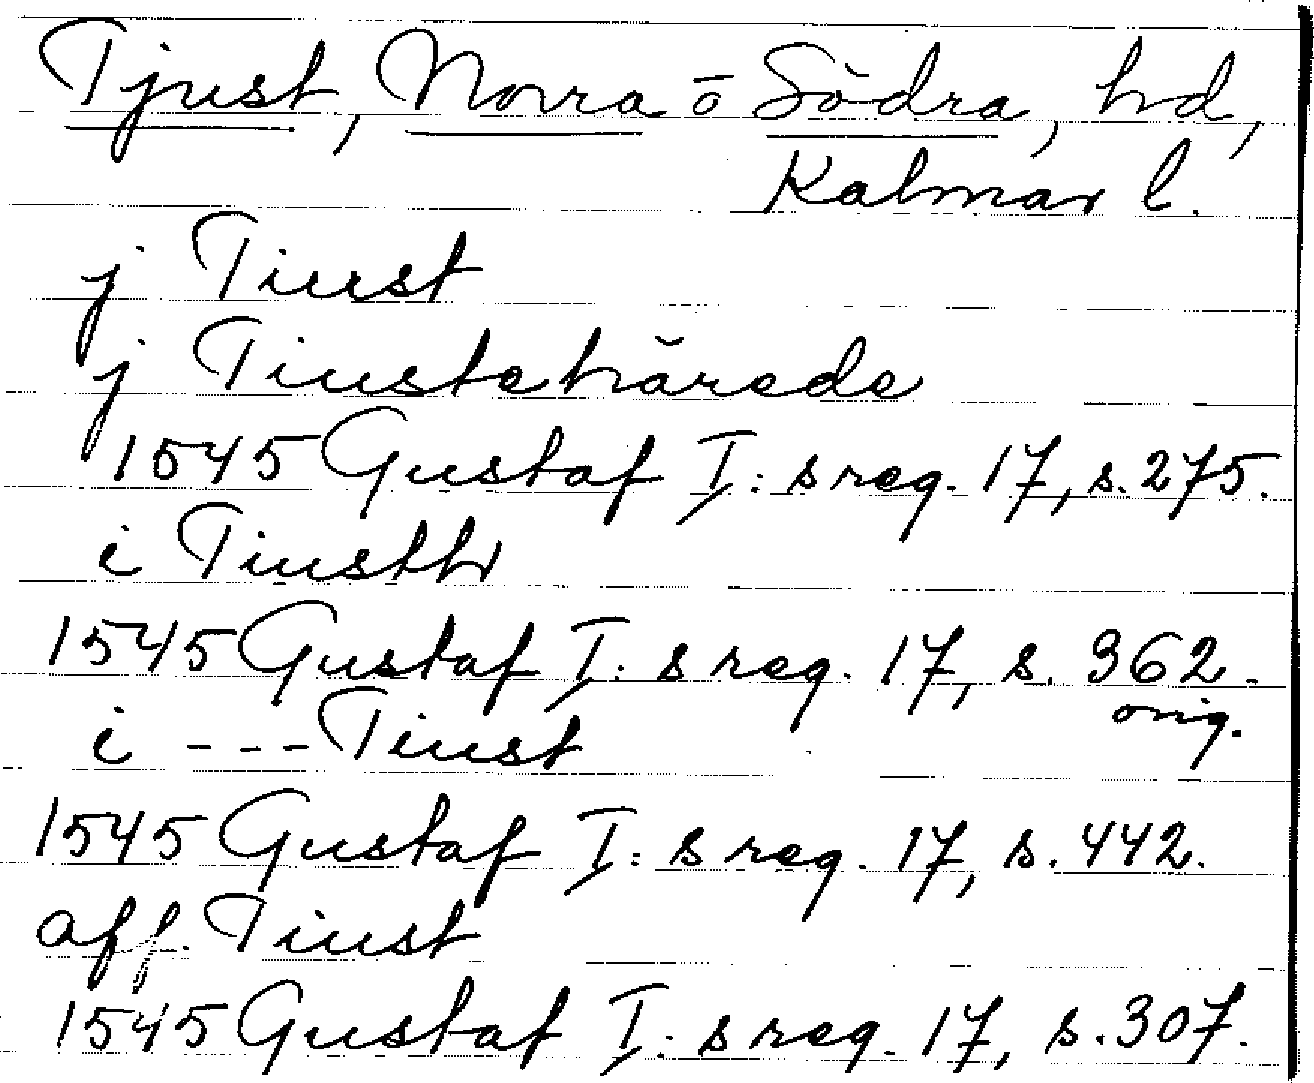 Tjust, Norra o Södra, hd,
Kalmar l.
j Tiust
j Tiustehärede
1545 Gustaf I: s reg. 17, s. 275.
i Tiusth
1545 Gustaf I: s reg. 17, s. 362.
orig.
i --- Tiust
1545 Gustaf I: s reg. 17, s. 442.
aff Tiust
1545 Gustaf I: s reg. 17, s. 307.